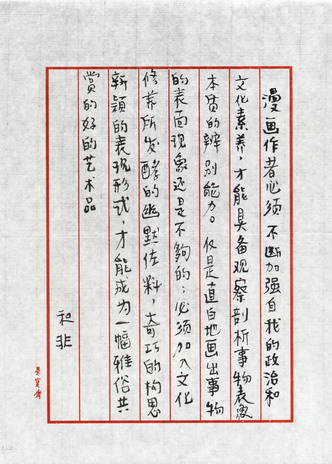 漫画作者必须不断加强自我的政治和
文化素养，才能具备观察剖析事物表像
本质的辨别能力。仅是直白地画出事物
的表面现象还是不够的；必须加入文化
修养所发酵的幽默佐料，奇巧的构思
新颖的表现形式，才能成为一幅雅俗共
赏的好的艺术品